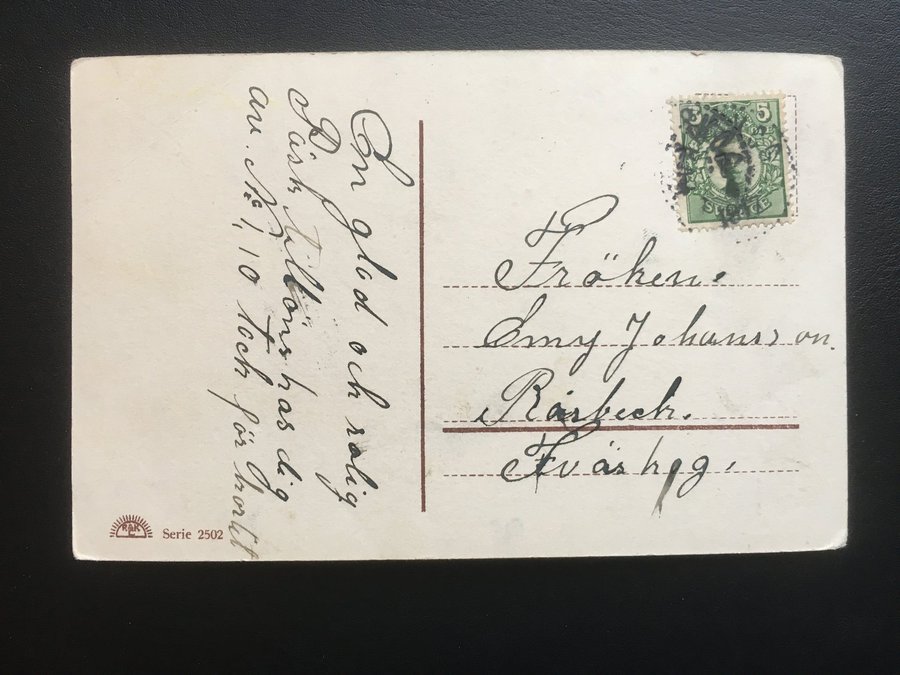 En glad och rolig
Påsk tillönskas dig
av. No 10 tack för kortt
5 5
SVERIGE
Fröken.
Emy Johansson.
Råsbeck.
Kvåshög.
R&K
L
Serie 2502